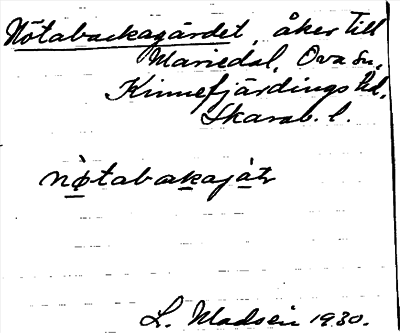 Nötabackagärdet, åker till
Mariedal, Ova sn,
Kinnefjärdings hd,
Skarab. l.
nø̀tabakajàtr
L. Madsén 1930.